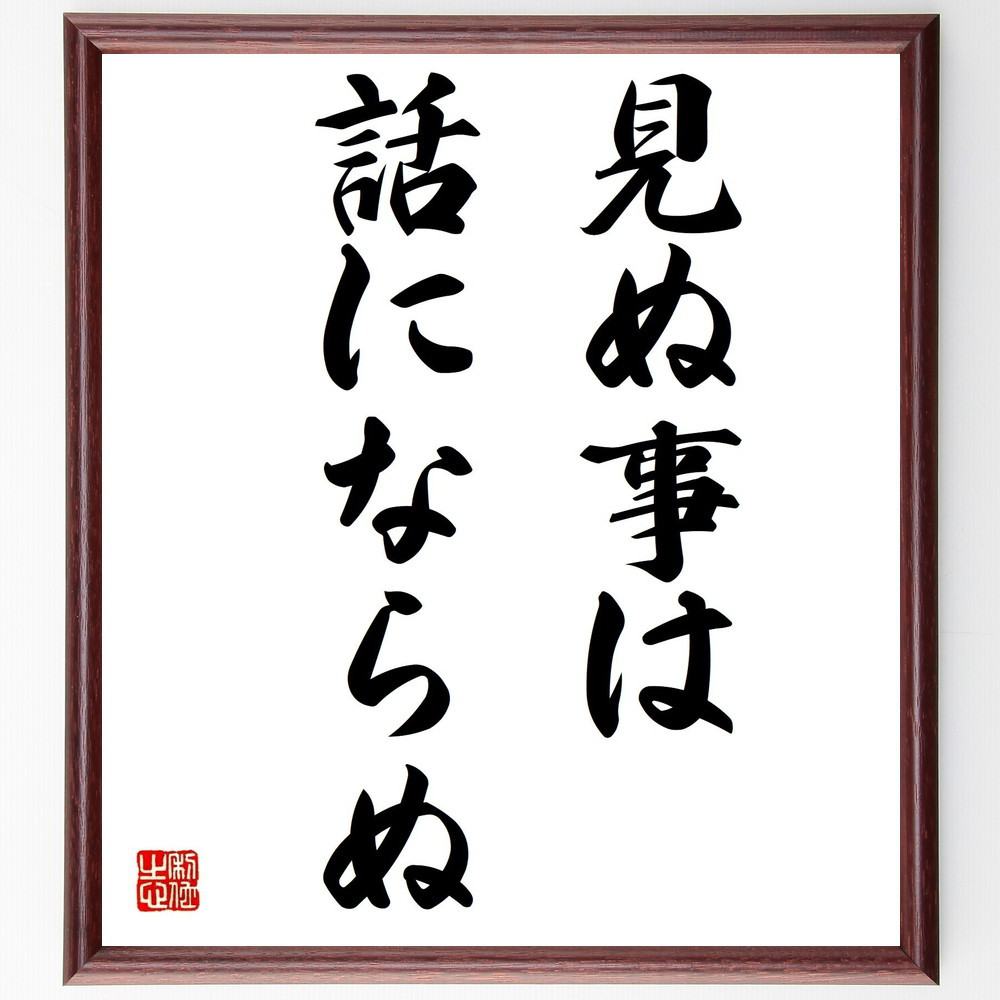 見ぬ事は
話にならぬ